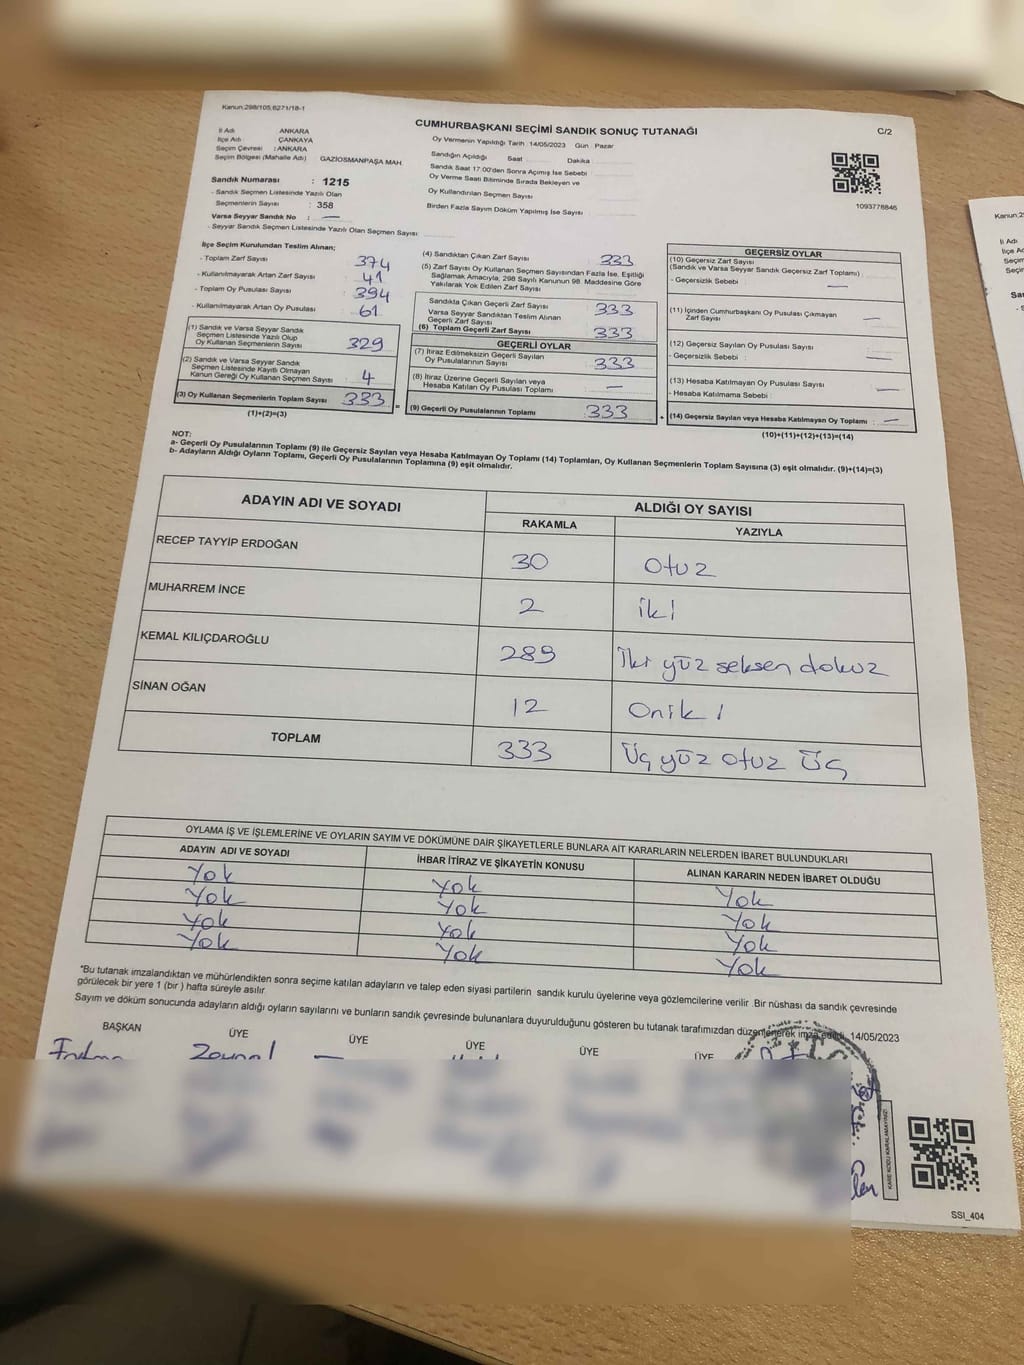 Kanun:298/105,6271/18-1
CUMHURBAŞKANI SEÇİMİ SANDIK SONUÇ TUTANAĞI
C/2
İl Adı : ANKARA
İlçe Adı : ÇANKAYA
Seçim Çevresi : ANKARA
Seçim Bölgesi (Mahalle Adı) GAZİOSMANPAŞA MAH.
Sandık Numarası : 1215
- Sandık Seçmen Listesinde Yazılı Olan
Seçmenlerin Sayısı : 358
Varsa Seyyar Sandık No : —
- Seyyar Sandık Seçmen Listesinde Yazılı Olan Seçmen Sayısı:
Oy Vermenin Yapıldığı Tarih : 14/05/2023 Gün : Pazar
Sandığın Açıldığı Saat Dakika
Sandık Saat 17:00'den Sonra Açımış İse Sebebi :
Oy Verme Saati Bitiminde Sırada Bekleyen ve
Oy Kullandırılan Seçmen Sayısı :
Birden Fazla Sayım Döküm Yapılmış İse Sayısı :
1093778846
İlçe Seçim Kurulundan Teslim Alınan;
- Toplam Zarf Sayısı : 374
- Kullanılmayarak Artan Zarf Sayısı : 41
- Toplam Oy Pusulası Sayısı : 394
- Kullanılmayarak Artan Oy Pusulası : 61
(1) Sandık ve Varsa Seyyar Sandık
Seçmen Listesinde Yazılı Olup
Oy Kullanan Seçmenlerin Sayısı : 329
(2) Sandık ve Varsa Seyyar Sandık
Seçmen Listesinde Kayıtlı Olmayan
Kanun Gereği Oy Kullanan Seçmen Sayısı : 4
(3) Oy Kullanan Seçmenlerin Toplam Sayısı : 333
(1)+(2)=(3)
(4) Sandıktan Çıkan Zarf Sayısı : 333
(5) Zarf Sayısı Oy Kullanan Seçmen Sayısından Fazla İse, Eşitliği
Sağlamak Amacıyla, 298 Sayılı Kanunun 98. Maddesine Göre
Yakılarak Yok Edilen Zarf Sayısı :
Sandıkta Çıkan Geçerli Zarf Sayısı : 333
Varsa Seyyar Sandıktan Teslim Alınan
Geçerli Zarf Sayısı :
(6) Toplam Geçerli Zarf Sayısı : 333
GEÇERLİ OYLAR
(7) İtiraz Edilmeksizin Geçerli Sayılan
Oy Pusulalarının Sayısı : 333
(8) İtiraz Üzerine Geçerli Sayılan veya
Hesaba Katılan Oy Pusulası Toplamı : —
(9) Geçerli Oy Pusulalarının Toplamı : 333
GEÇERSİZ OYLAR
(10) Geçersiz Zarf Sayısı
(Sandık ve Varsa Seyyar Sandık Geçersiz Zarf Toplamı) :
- Geçersizlik Sebebi : —
(11) İçinden Cumhurbaşkanı Oy Pusulası Çıkmayan
Zarf Sayısı : —
(12) Geçersiz Sayılan Oy Pusulası Sayısı :
- Geçersizlik Sebebi : —
(13) Hesaba Katılmayan Oy Pusulası Sayısı : —
- Hesaba Katılmama Sebebi :
(14) Geçersiz Sayılan veya Hesaba Katılmayan Oy Toplamı : —
(10)+(11)+(12)+(13)=(14)
NOT:
a- Geçerli Oy Pusulalarının Toplamı (9) ile Geçersiz Sayılan veya Hesaba Katılmayan Oy Toplamı (14) Toplamları, Oy Kullanan Seçmenlerin Toplam Sayısına (3) eşit olmalıdır. (9)+(14)=(3)
b- Adayların Aldığı Oyların Toplamı, Geçerli Oy Pusulalarının Toplamına (9) eşit olmalıdır.
ADAYIN ADI VE SOYADI ALDIĞI OY SAYISI
RAKAMLA YAZIYLA
RECEP TAYYİP ERDOĞAN 30 Otuz
MUHARREM İNCE 2 iki
KEMAL KILIÇDAROĞLU 289 İki yüz seksen dokuz
SİNAN OĞAN 12 Oniki
TOPLAM 333 Üç yüz otuz üç
OYLAMA İŞ VE İŞLEMLERİNE VE OYLARIN SAYIM VE DÖKÜMÜNE DAİR ŞİKAYETLERLE BUNLARA AİT KARARLARIN NELERDEN İBARET BULUNDUKLARI
ADAYIN ADI VE SOYADI İHBAR İTİRAZ VE ŞİKAYETİN KONUSU ALINAN KARARIN NEDEN İBARET OLDUĞU
Yok Yok Yok
Yok Yok Yok
Yok Yok Yok
Yok Yok Yok
"Bu tutanak imzalandıktan ve mühürlendikten sonra seçime katılan adayların ve talep eden siyasi partilerin sandık kurulu üyelerine veya gözlemcilerine verilir. Bir nüshası da sandık çevresinde
görülecek bir yere 1 (bir) hafta süreyle asılır.
Sayım ve döküm sonucunda adayların aldığı oyların sayılarını ve bunların sandık çevresinde bulunanlara duyurulduğunu gösteren bu tutanak tarafımızdan düzenlenerek imza edildi. 14/05/2023
BAŞKAN ÜYE ÜYE ÜYE ÜYE ÜYE
KARE KODU KARALAMAYINIZ!
SSI_404